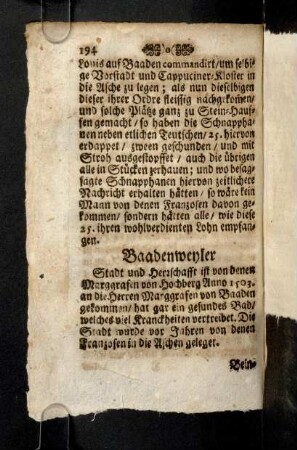 194
Louis auf Baaden commandirt/ um selbige
Vorstadt und Cappuciner-Kloster in
die Asche zu legen; als nun dieselbigen
dieser ihrer Ordre fleissig nachgekomen/
und solche Plätze gantz zu Stein-Hauf-
fen gemacht/ so haben die Schnapphä-
nen neben etlichen Teutschen/ 25. hiervon
erdappet/ zween geschunden/ und mit
Stroh ausgestopffet/ auch die übrigen
alle in Stücken zerhauen; und wo besag-
sagte Schnapphanen hiervon zeitlichere
Nachricht erhalten hätten/ so wäre kein
Mann von denen Franzosen davon ge-
kommen/ sondern hätten alle/ wie diese
25. ihren wohlverdienten Lohn empfan-
gen.
Baadenweyler
Stadt und Herzschafft ist von denen
Marggrafen von Hochberg Anno 1503.
an die Herren Marggrafen von Baaden
gekommen/ hat gar ein gesundes Bad/
welches viel Kranckheiten vertreibet. Die
Stadt wurde vor Jahren von denen
Franzosen in die Aschen geleget.
Bein-